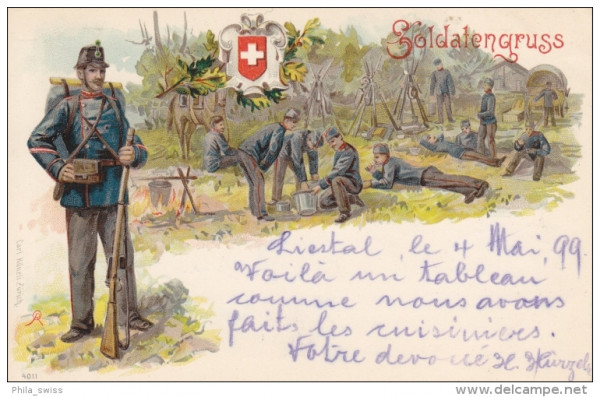 Soldatengruss
Liestal, le 4 Mai, 99.
Voilà un tableau
comme nous avons
faits les cuisiniers.
Votre dévoué H. Kürzel
4011
Phila_swiss
delcampe.net